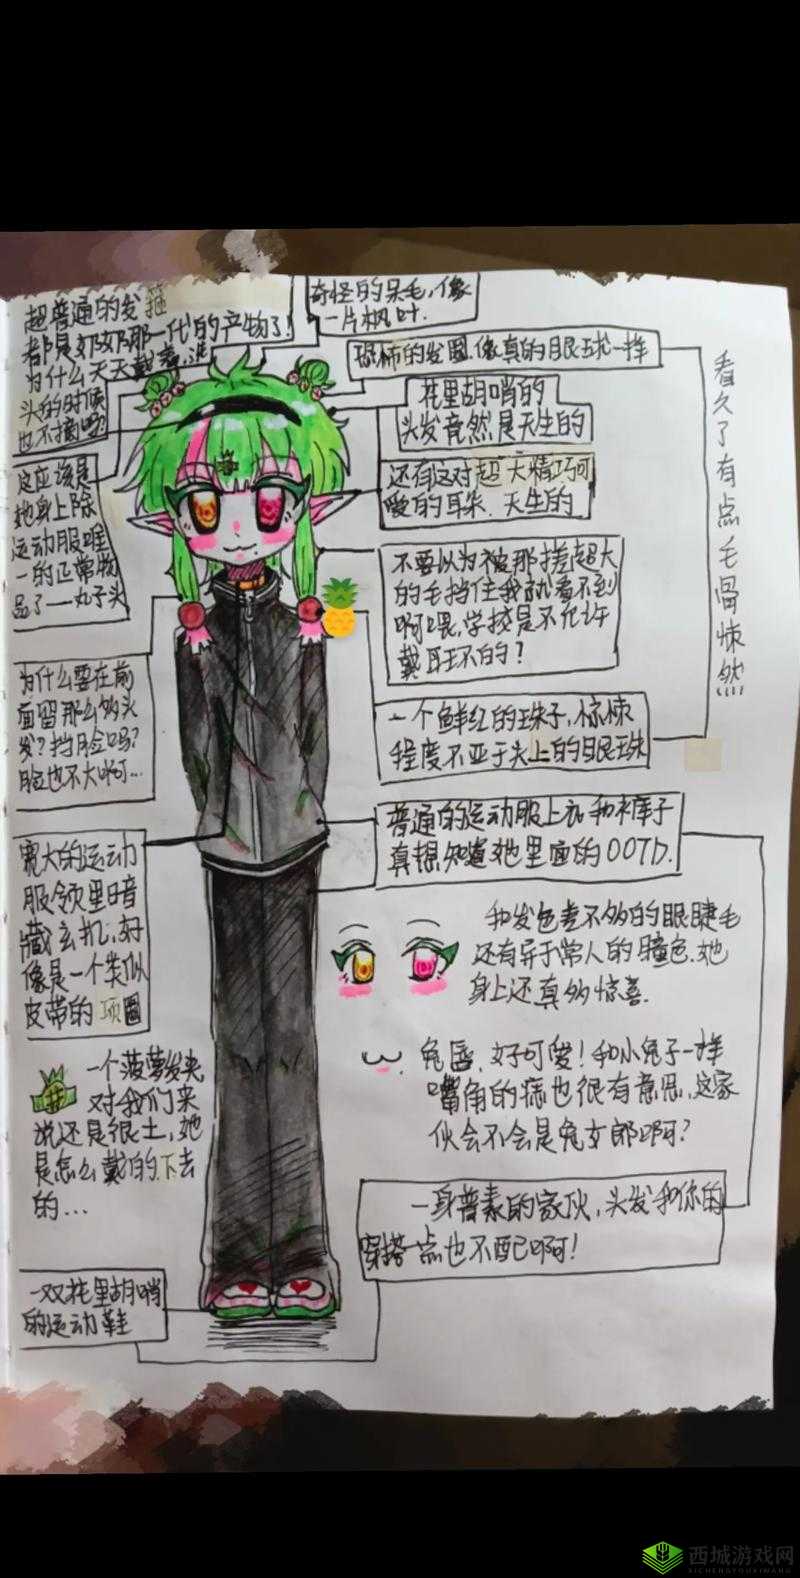 超普通的发箍
都是奶奶那一代的产物了!
为什么天天戴着,洗
头的时候
也不摘吗?
奇怪的呆毛,像
一片枫叶.
恐怖的发圈.像真的眼球一样
看久了有点毛骨悚然
花里胡哨的
头发竟然是天生的
还有这对超大精巧可
爱的耳朵.天生的
这应该是
她身上除
运动服唯
一的正常物
品了——丸子头
不要以为被那搓超大
的毛挡住我就看不到
啊喂,学校是不允许
戴耳环的?
为什么要在前
面留那么多头
发?挡脸吗?
脸也不大啊...
一个鲜红的珠子,惊悚
程度不亚于头上的眼珠
普通的运动服上衣和裤子
真想知道她里面的OOTD.
宽大的运动
服领里暗
藏玄机,好
像是一个类似
皮带的项圈
和发色差不多的眼睫毛
还有异于常人的瞳色.她
身上还真多惊喜.
一个菠萝发夹
对我们来
说还是很土,她
是怎么戴的下去
的...
兔唇,好可爱!和小兔子一样
嘴角的痣也很有意思,这家
伙会不会是兔女郎啊?
一身普素的家伙,头发和你的
穿搭一点也不配啊!
一双花里胡哨
的运动鞋
西城游戏网
XICHENGYOUXIWANG